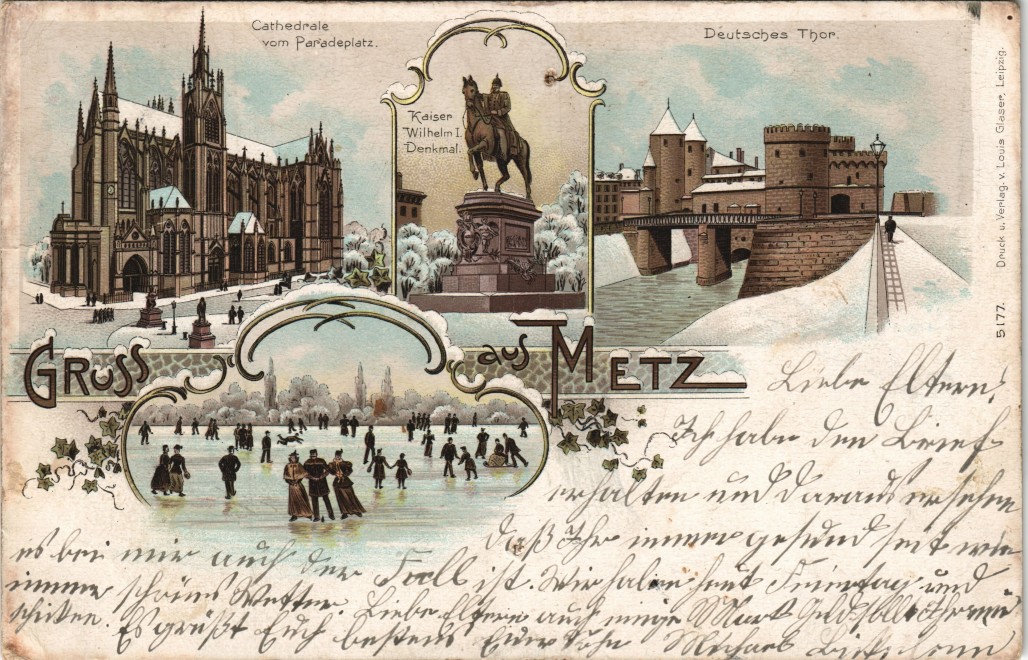 Cathedrale
vom Paradeplatz.
Kaiser
Wilhelm I.
Denkmal.
Deutsches Thor.
Druck u. Verlag. v. Louis Glaser, Leipzig.
5177.
GRUSS aus METZ
Liebe Eltern!
Ich habe den Brief
erhalten und daraus ersehen
daß Ihr immer gesund seit wie
es bei mir auch der Fall ist. Wir haben heut Feiertag und
immer schönes Wetter. Liebe Eltern auch einige Mark Geld sollt Ihr mir
schicken. Es grüßt Euch bestens Euer Sohn Michael